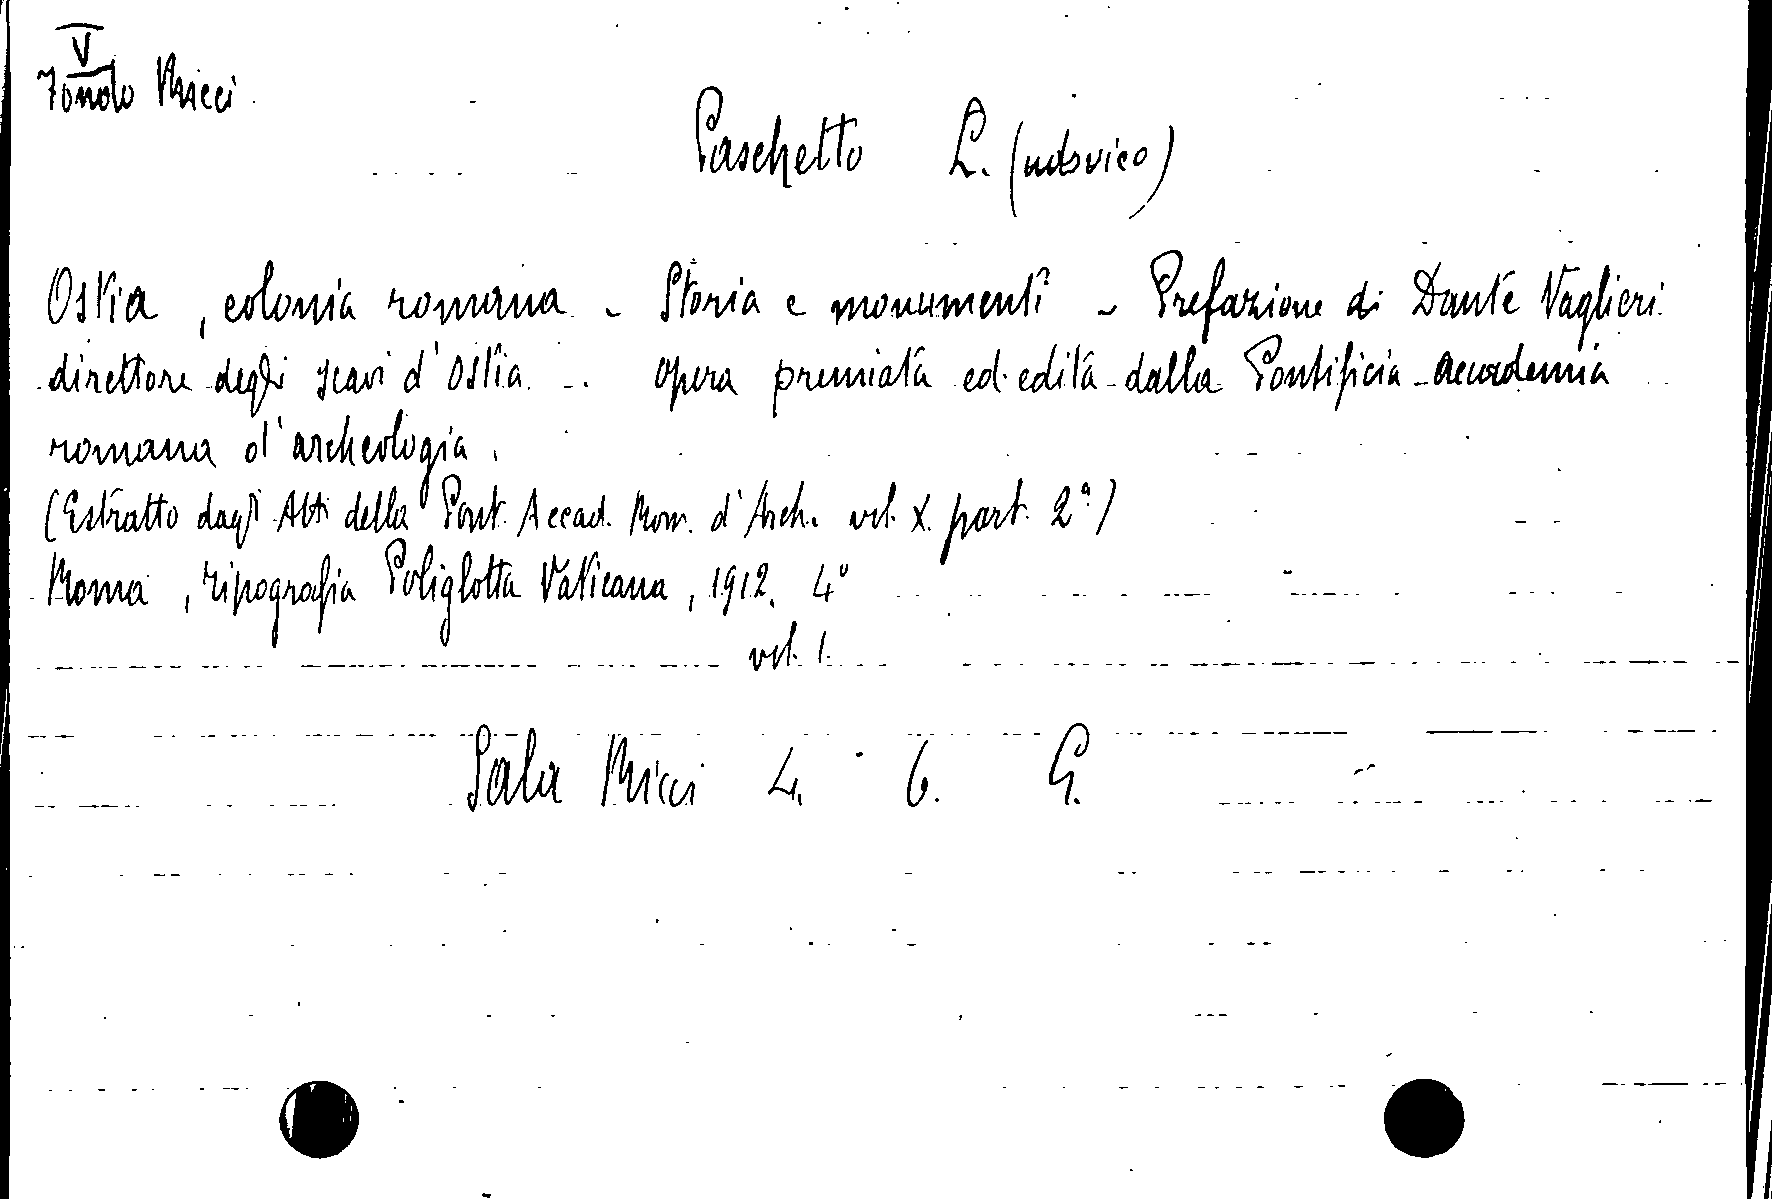 V
Fondo Ricci
Paschetto L. (udovico)
Ostia, colonia romana - Storia e monumenti - Prefazione di Dante Vaglieri
direttore degli scavi d'Ostia. - . Opera premiata ed edita dalla Pontificia Accademia
romana d'archeologia.
(Estratto dagli Atti della Pont. Accad. Rom. d'Arch. vol. X. part. 2ª)
Roma, Tipografia Poliglotta Vaticana, 1912. 4º
vol. 1.
Sala Ricci 4. 6. G.